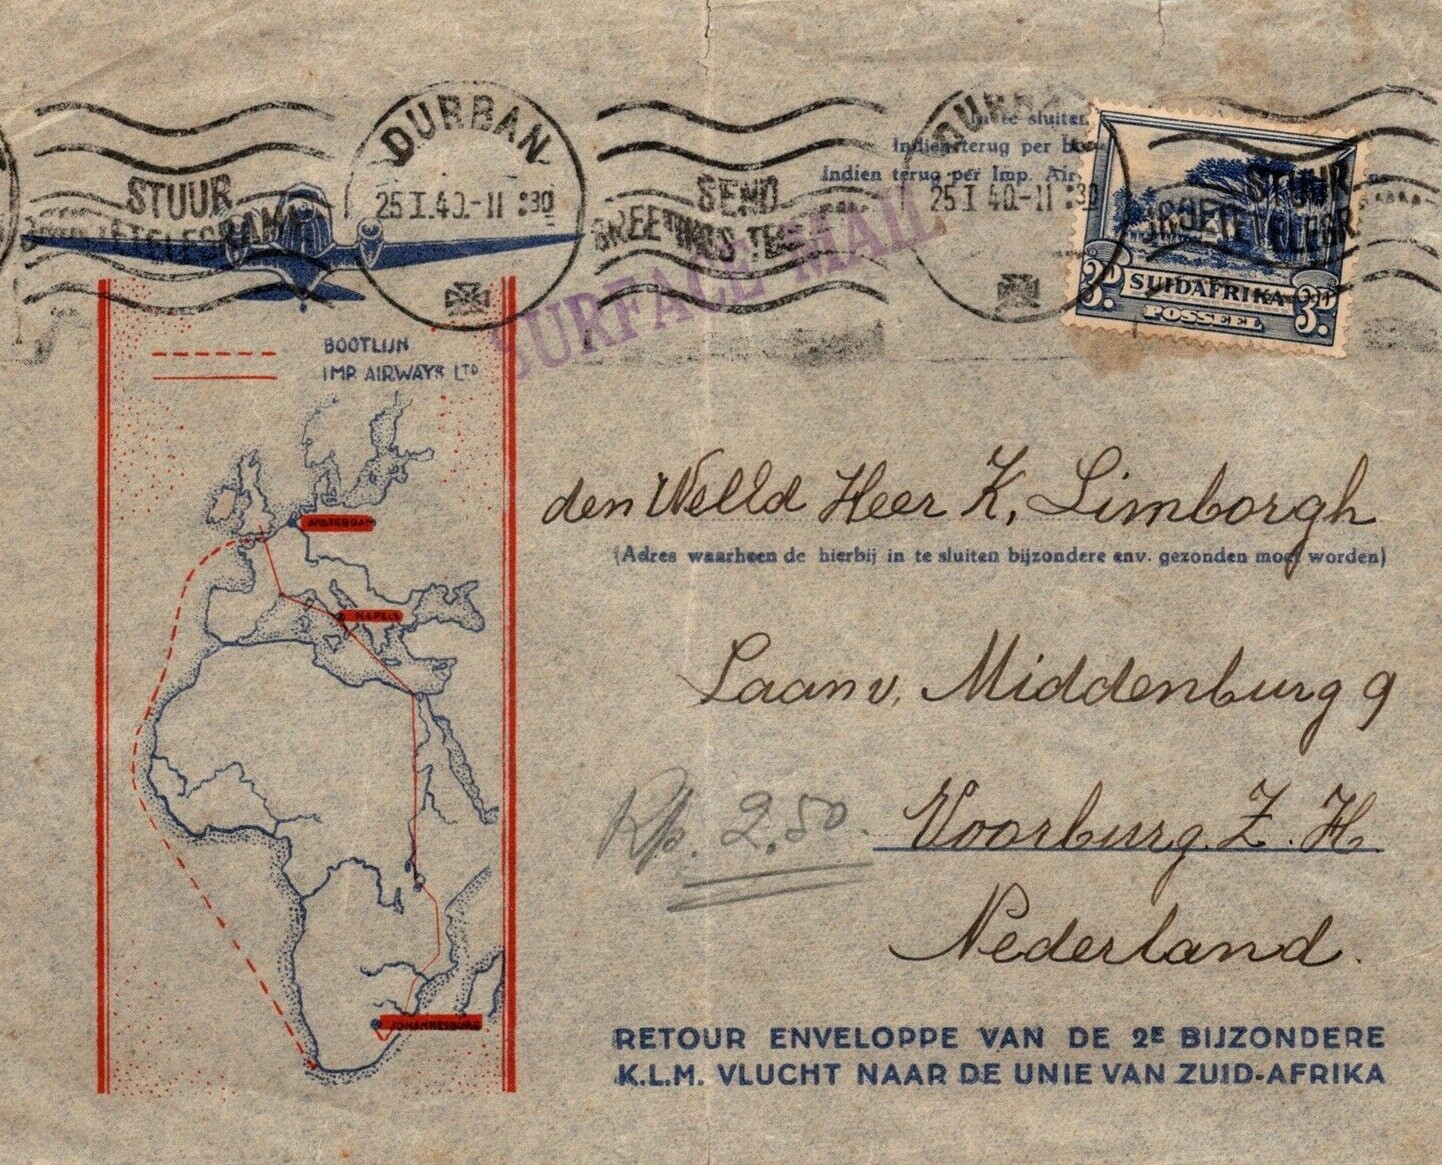 DURBAN
25 I 40.-11 :30
STUUR
SEND
GREETINGS
25 I 40.-11 :30
STUUR
SURFACE MAIL
te sluiten
Indien terug per
Indien terug per Imp. Air
3D SUIDAFRIKA 3D
POSSEËL
BOOTLIJN
IMP. AIRWAYS LTD
AMSTERDAM
NAPELS
JOHANNESBURG
den Welld Heer K. Limborgh
(Adres waarheen de hierbij in te sluiten bijzondere env. gezonden moet worden)
Laan v. Middenburg 9
Rp. 2.50.
Voorburg. Z. H.
Nederland.
RETOUR ENVELOPPE VAN DE 2E BIJZONDERE
K.L.M. VLUCHT NAAR DE UNIE VAN ZUID-AFRIKA